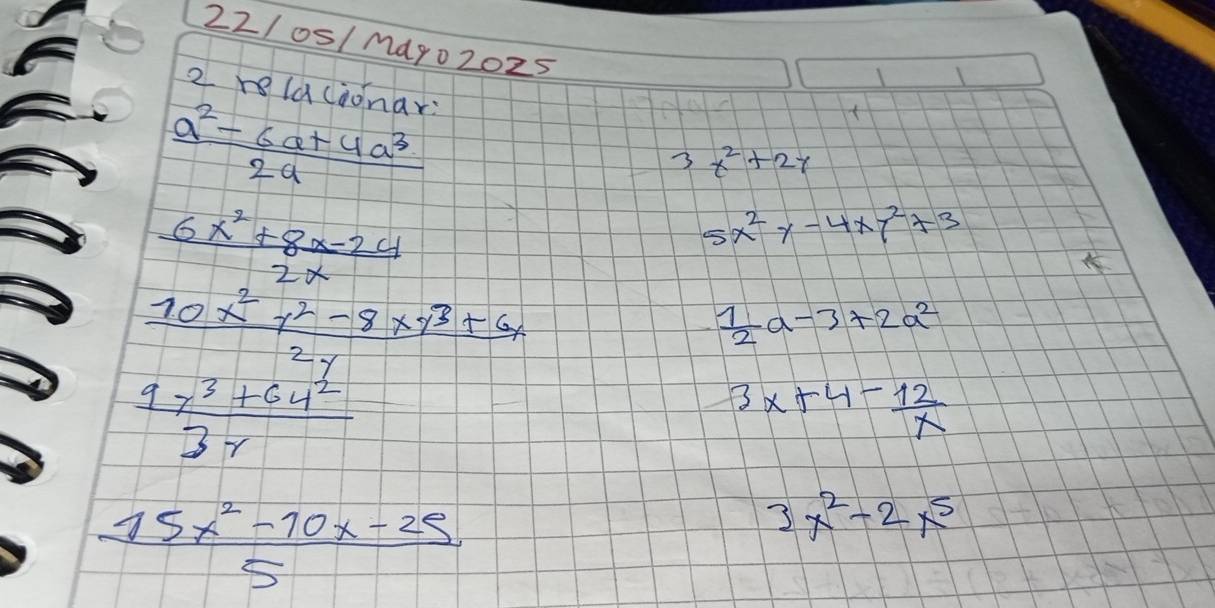 22/05/Mayo 2025
2 relacionar:
a² - 6a + 4a³ / 2a    3x² + 2y
6x² + 8x - 24 / 2x    5x²y - 4xy² + 3
10x²y² - 8xy³ + 6y / 2y    1/2 a - 3 + 2a²
9y³ + 6y² / 3y    3x + 4 - 12/x
15x² - 10x - 25 / 5    3x² - 2x⁵